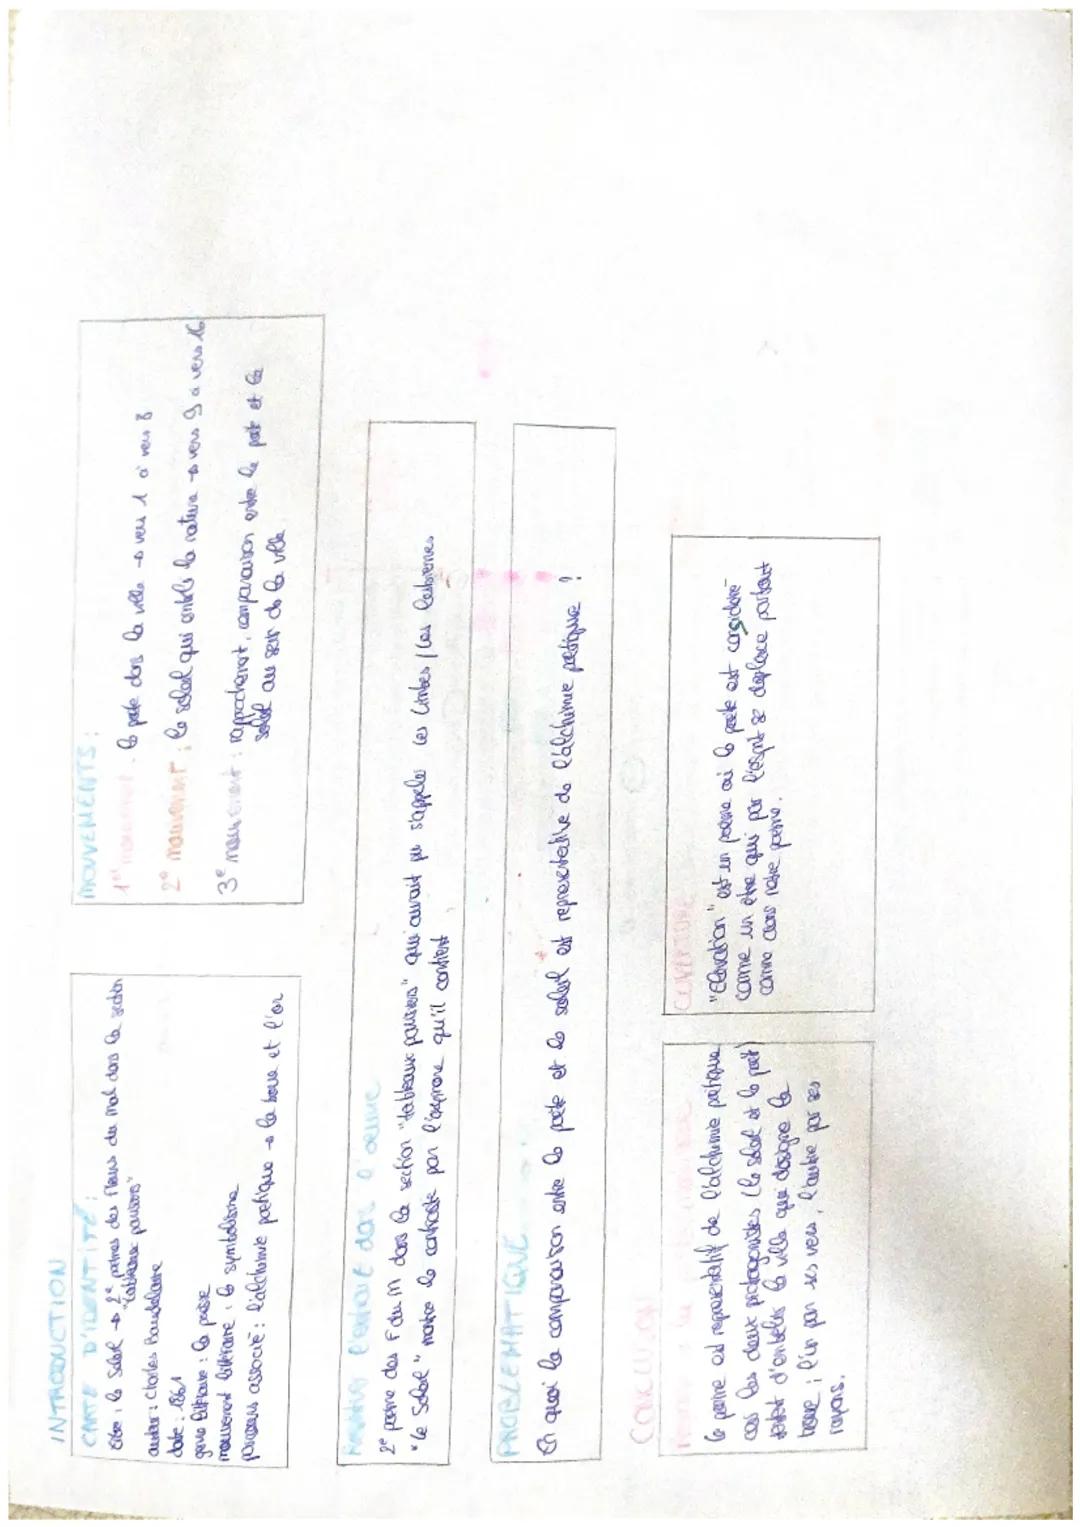 INTRODUCTION
CARTE D'IDENTITÉ :
titre : le soleil → 2e poèmes des fleurs du mal dans la section
"tableaux parisiens"
auteur : Charles Baudelaire
date : 1861
genre littéraire : la poésie
mouvement littéraire : le symbolisme
parcours associé : l'alchimie poétique → la boue et l'or
MOUVEMENTS :
1er mouvement : le poète dans la ville → vers 1 à vers 8
2e mouvement : le soleil qui embelli la nature → vers 9 a vers 16
3e mouvement : rapprochement, comparaison entre le poète et le
soleil au sein de la ville
l'extrait dans l'œuvre
2e poème des F du M dans la section "tableaux parisiens" qui aurait pu s'appeler les limbes / les lesbiennes
"Le Soleil" montre le contraste par l'oxymore qu'il contient
PROBLEMATIQUE
En quoi la comparaison entre le poète et le soleil est representative de l'alchimie poétique ?
CONCLUSION
le poème est représentatif de l'alchimie poétique
car les deux protagonistes (le soleil et le poète)
tentent d'embellir la ville que designe la
boue ; l'un par ses vers, l'autre par ses
rayons.
OUVERTURE
"Elévation" est un poème où le poète est considéré
comme un être qui par l'esprit se deplace partout
comme dans notre poème.